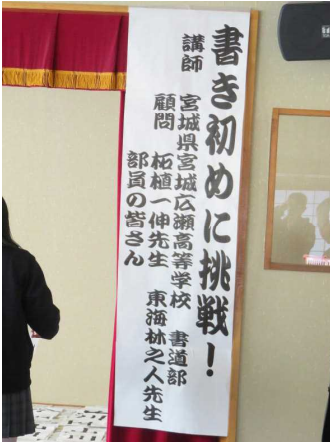 書き初めに挑戦！
講師　宮城県宮城広瀬高等学校　書道部
顧問　柘植一伸先生　東海林之人先生
部員の皆さん